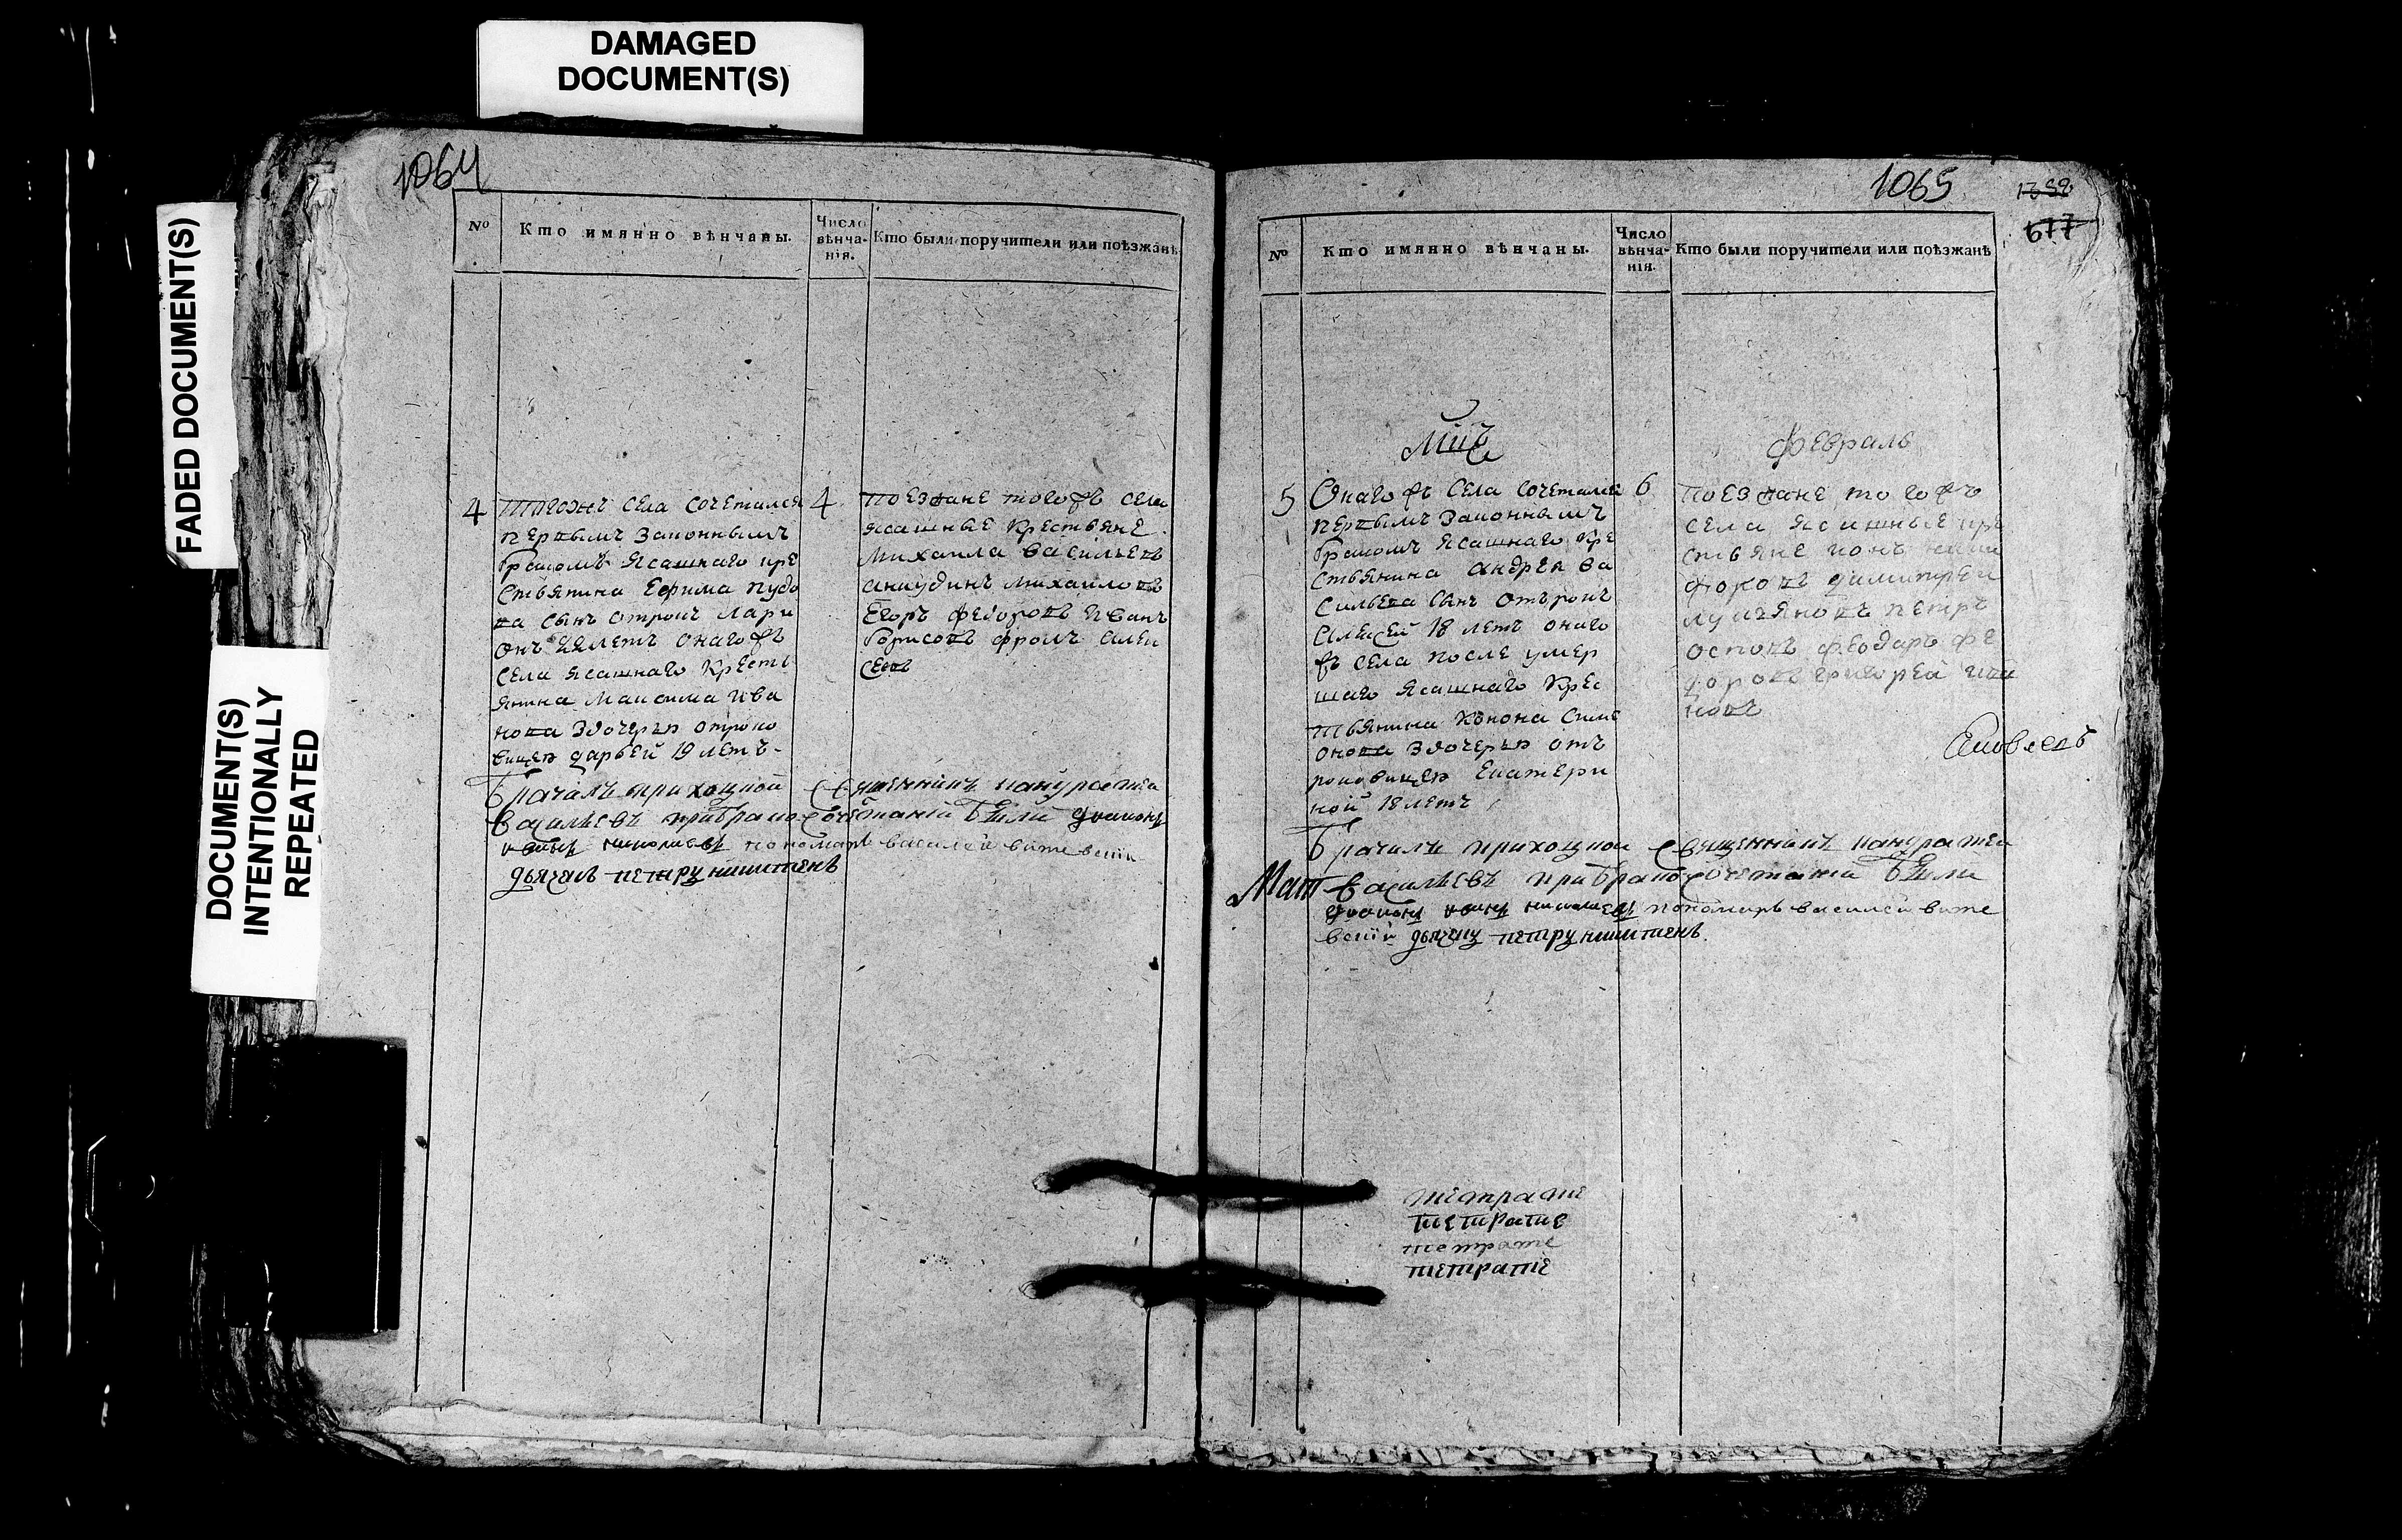 DAMAGED
DOCUMENT(S)
FADED DOCUMENT(S)
DOCUMENT(S)
INTENTIONALLY
REPEATED
1064
№
Кто имянно вѣнчаны.
Число
вѣнча-
нія.
Кто были поручители или поѣзжанѣ
4
тогожъ села сочетался
первымъ законнымъ
бракомъ ясашнаго кре
стьянина Ефима
ва сынъ отрокъ Лари
онъ летъ онагожъ
села ясашнаго кресть
янина Максима Ива
нова здочерью отроко
вицею дарьей 19 летъ
4
поезжане тогожъ села
ясашные крестьяне
Михаила васильевъ
Михаиловъ
Егоръ федоровъ Иванъ
борисовъ фролъ алек
сеевъ
брачалъ приходской священникъ кандратей
васильевъ при бракосочетании были
пономарь василей
петръ никитинъ
1065
1352
677
№
Кто имянно вѣнчаны.
Число
вѣнча-
нія.
Кто были поручители или поѣзжанѣ
Мцъ
февраль
5
Онагожъ села сочетался
первымъ законнымъ
бракомъ ясашнаго кре
стьянина андрея ва
сильева сынъ отърокъ
алексей 18 летъ онаго
жъ села после умер
шаго ясашнаго крес
тьянина конона симе
онова здочерью отъ
роковицею Екатери
ной 18 летъ
6
поезжане тогожъ
села ясашные кре
стьяне
димитрей
лукъяновъ петръ
осповъ феодаръ фе
доровъ григорей ива
новъ
Яковлевъ
брачилъ приходской священникъ кандратей
Мат
васильевъ при бракосочетании были
пономарь василей
петръ никитинъ.
тетрате
тетрате
тетрате
тетрате